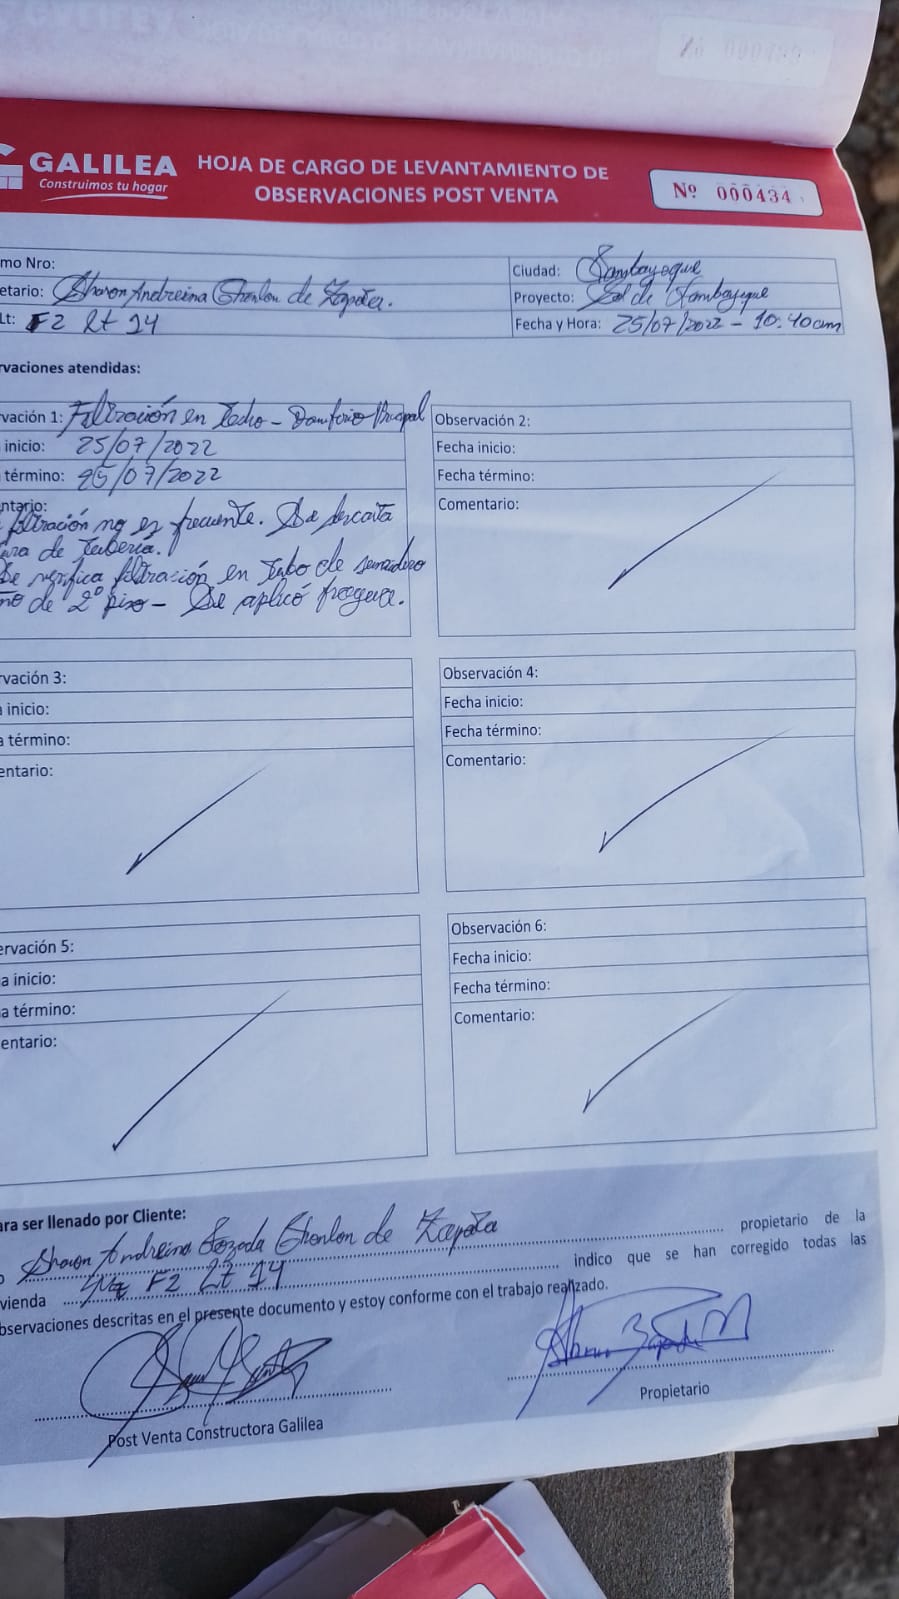 GALILEA
Construimos tu hogar
HOJA DE CARGO DE LEVANTAMIENTO DE
OBSERVACIONES POST VENTA
Nº 000434
mo Nro:
Ciudad: Lambayeque
etario: Sharon Andreina Chonlon de Zapata.
Proyecto: Sol de Lambayeque
Lt: F2 Lt 14
Fecha y Hora: 25/07/2022 - 10:40am
rvaciones atendidas:
vación 1: Filtración en Techo - Dormitorio Principal
inicio: 25/07/2022
término: 25/07/2022
ntario:
filtración no es frecuente. Se descarta
ra de tubería.
Se verifica filtración en tubo de sumidero
de 2º piso - Se aplicó fragua.
Observación 2:
Fecha inicio:
Fecha término:
Comentario:
vación 3:
inicio:
a término:
entario:
Observación 4:
Fecha inicio:
Fecha término:
Comentario:
ervación 5:
a inicio:
a término:
entario:
Observación 6:
Fecha inicio:
Fecha término:
Comentario:
ara ser llenado por Cliente:
o Sharon Andreina Lozada Chonlon de Zapata propietario de la
vienda Mz F2 Lt 14 indico que se han corregido todas las
bservaciones descritas en el presente documento y estoy conforme con el trabajo realizado.
Post Venta Constructora Galilea
Propietario